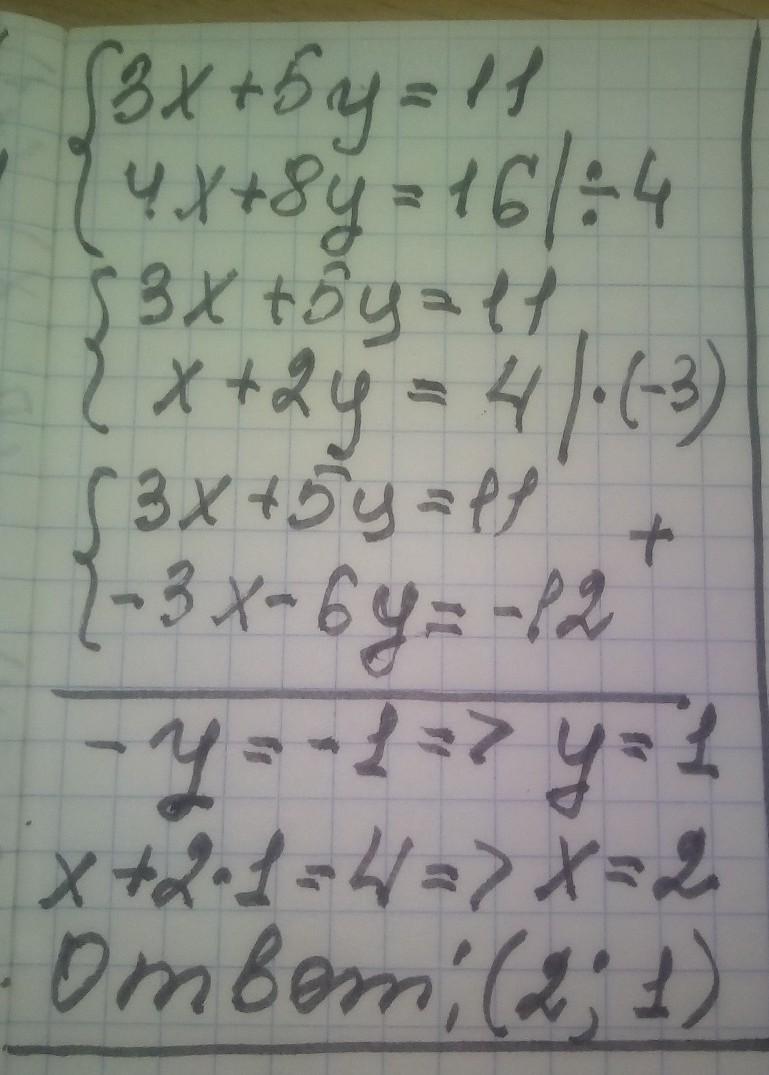 {3x+5y=11
4x+8y=16|÷4
{3x+5y=11
x+2y=4|·(-3)
{3x+5y=11
+
-3x-6y=-12
-y=-1=>y=1
x+2·1=4=>x=2
Ответ:(2;1)